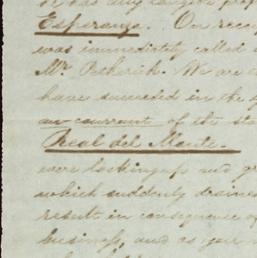 or has any
Esperanza. On rece
was immediately called
Mr. Petherick. We are
have succeeded in the
au courrant of the sta
Real del Monte.
were looking up and g
which suddenly desire
result in consequence of
business, and as your